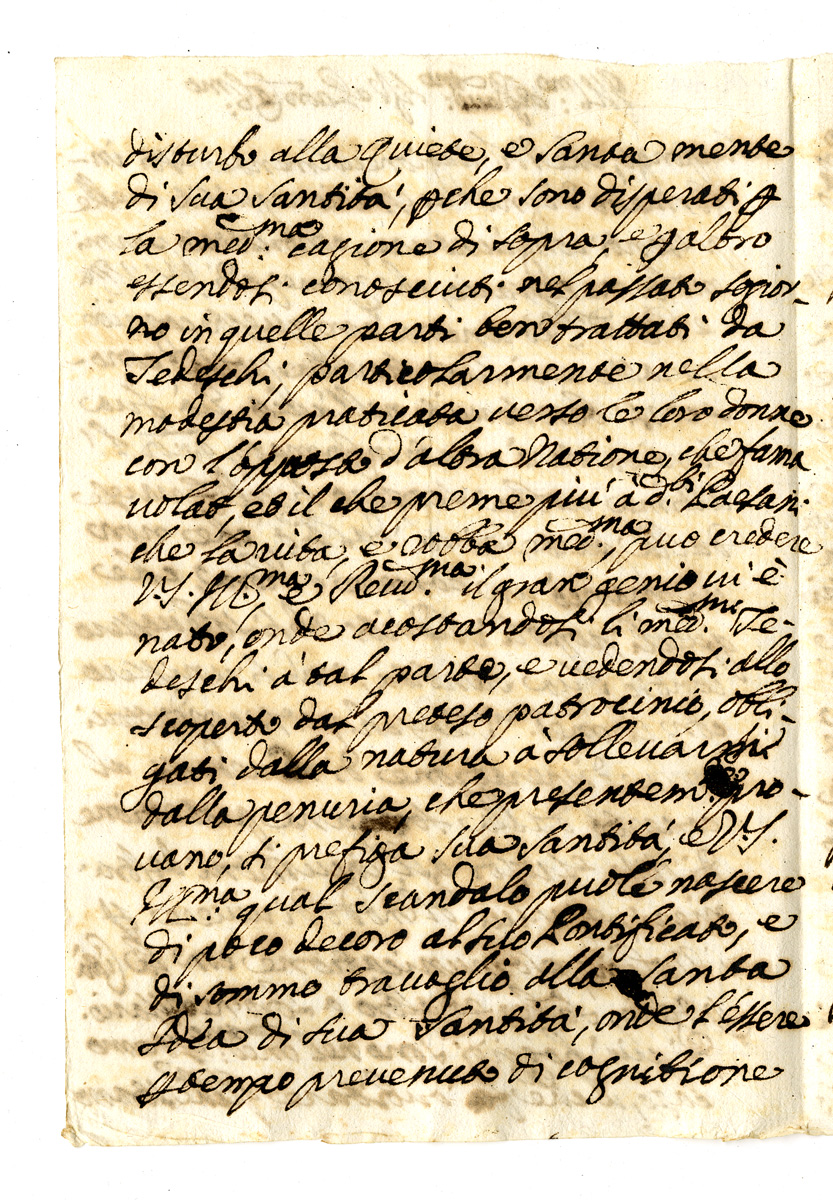 disturbo alla Quiete, e santa mente
di sua santità, p̱che sono disperati p̱
la med:ma cagione di sopra, e p̱ altro
essendosi conosciuti nel passato sogior-
no in quelle parti ben trattati da
Tedeschi, particolarmente nella
modestia praticata verso le loro donne
con l'opposto d'altra Natione, che fama
volat, et il che preme più à d:ti Paesani
che la vita, e robba med:ma, può credere
V.S. Ill:ma e Reud:ma il gran genio vi è
nato, onde acostandosi li med:mi Te-
deschi à tal parte, e vedendosi allo
scoperto dal preteso patrocinio, obli-
gati dalla natura à sollevarsi
dalla penuria, che presentem: pro-
vano, si prefiga sua santità, e V.S.
Ill:ma qual scandalo puole nascere
di poco decoro al suo Pontificato, e
di sommo travaglio alla santa
Idea di sua Santità, onde l'essere
p̱ tempo prevenuto di cognitione